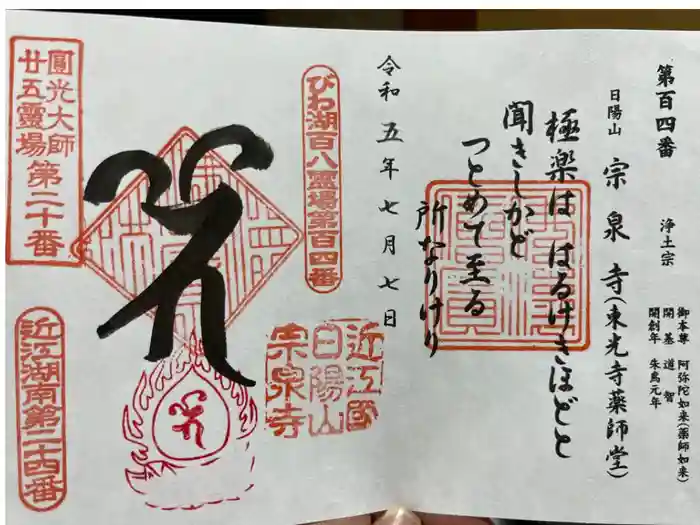 第百四番
浄土宗
日陽山
宗泉寺(東光寺薬師堂)
御本尊 阿弥陀如来(薬師如来)
開基 道智
開創年 朱鳥元年
極楽は はるけきほどと
聞きしかど
つとめて至る
所なりけり
令和五年七月七日
びわ湖百八霊場第百四番
圓光大師
廿五霊場第二十番
近江湖南第二十四番
近江國
日陽山
宗泉寺